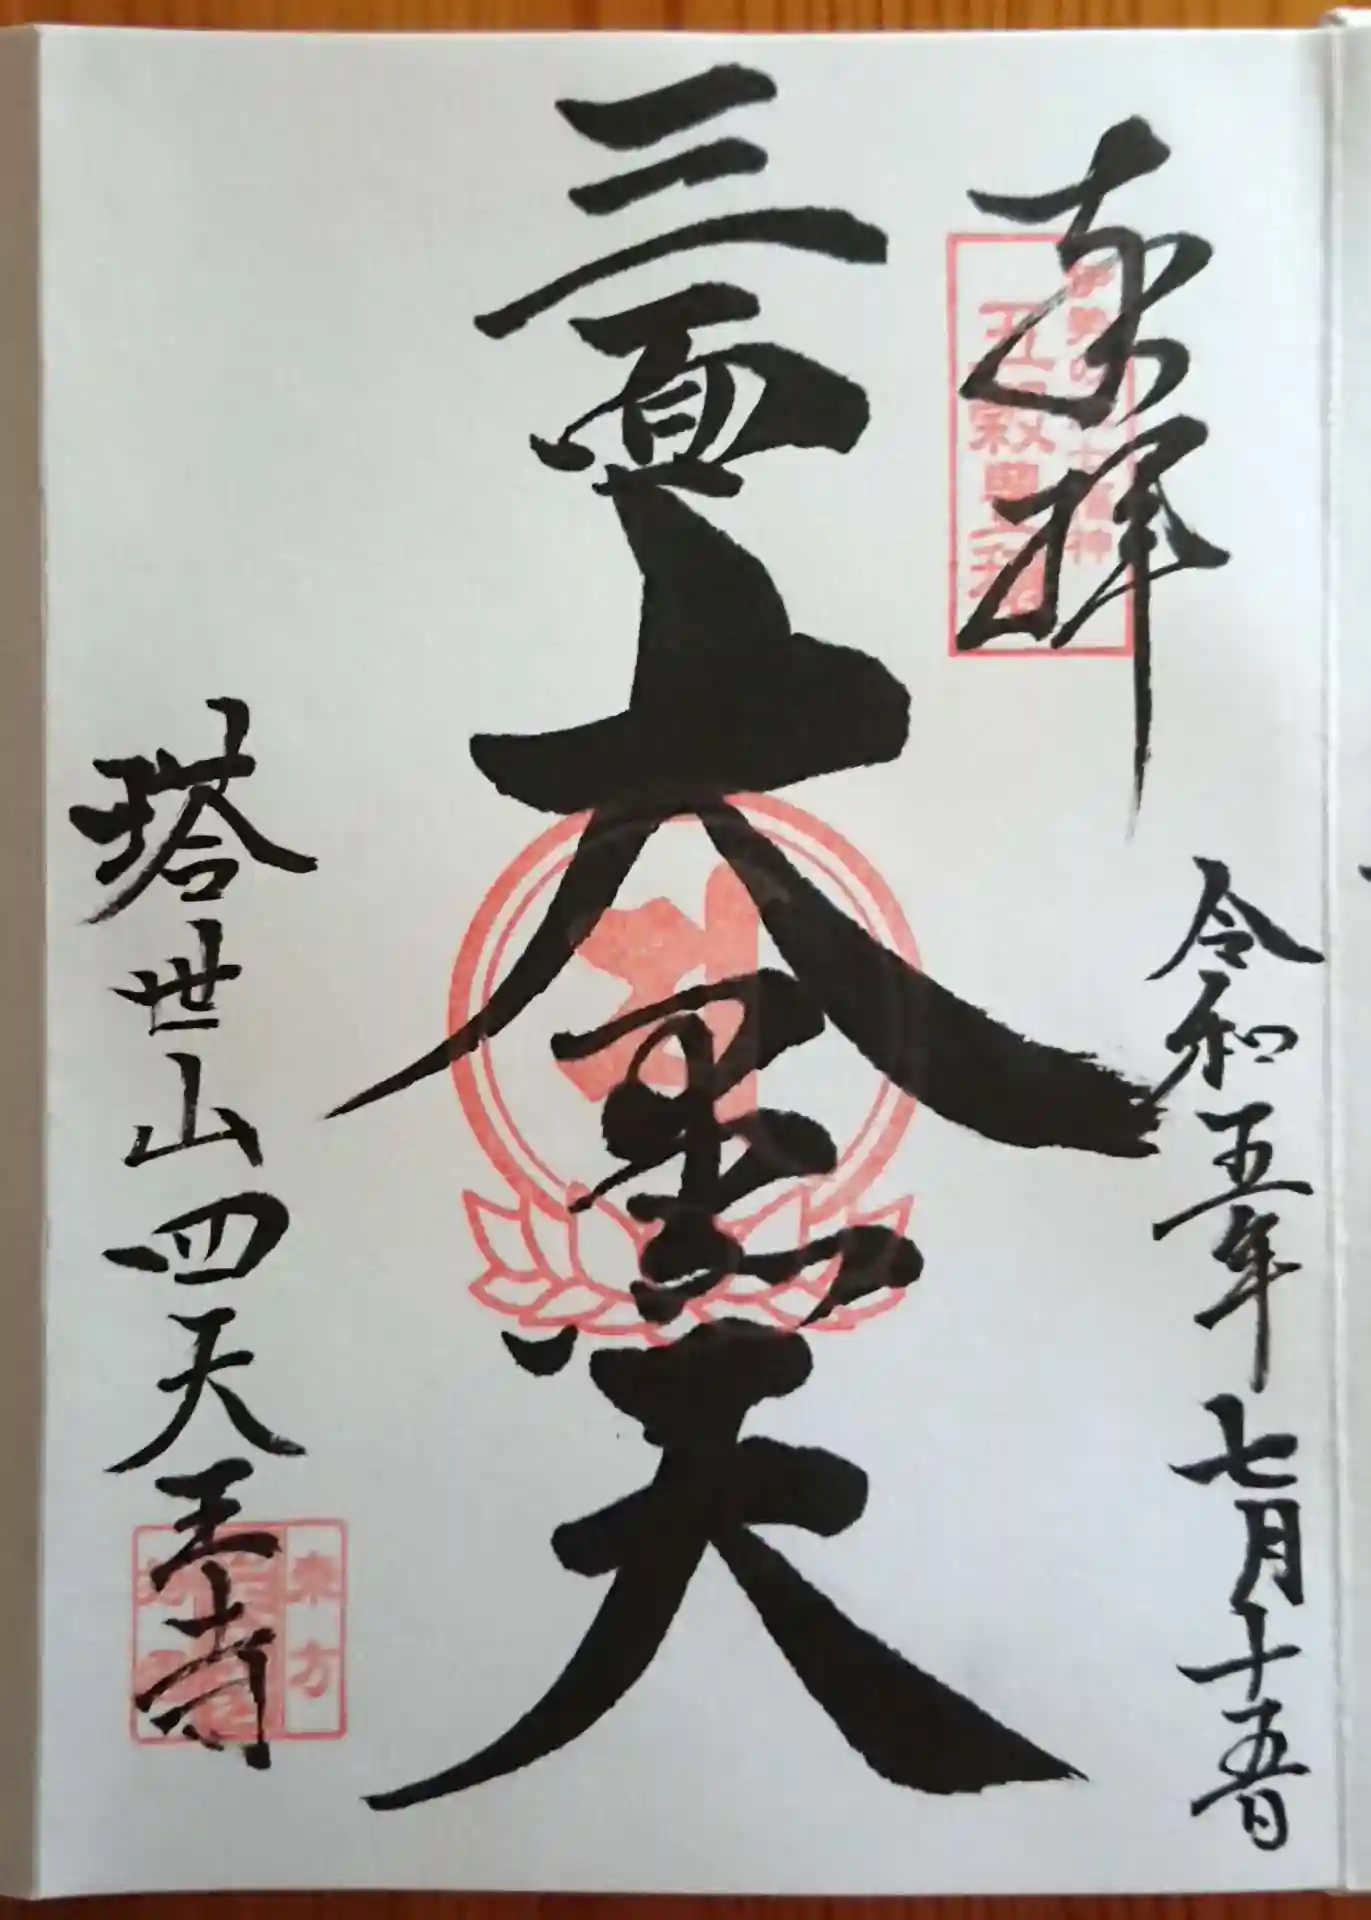 奉拝
令和五年七月十五日
三面大黒天
塔世山四天王寺
七福神
東方